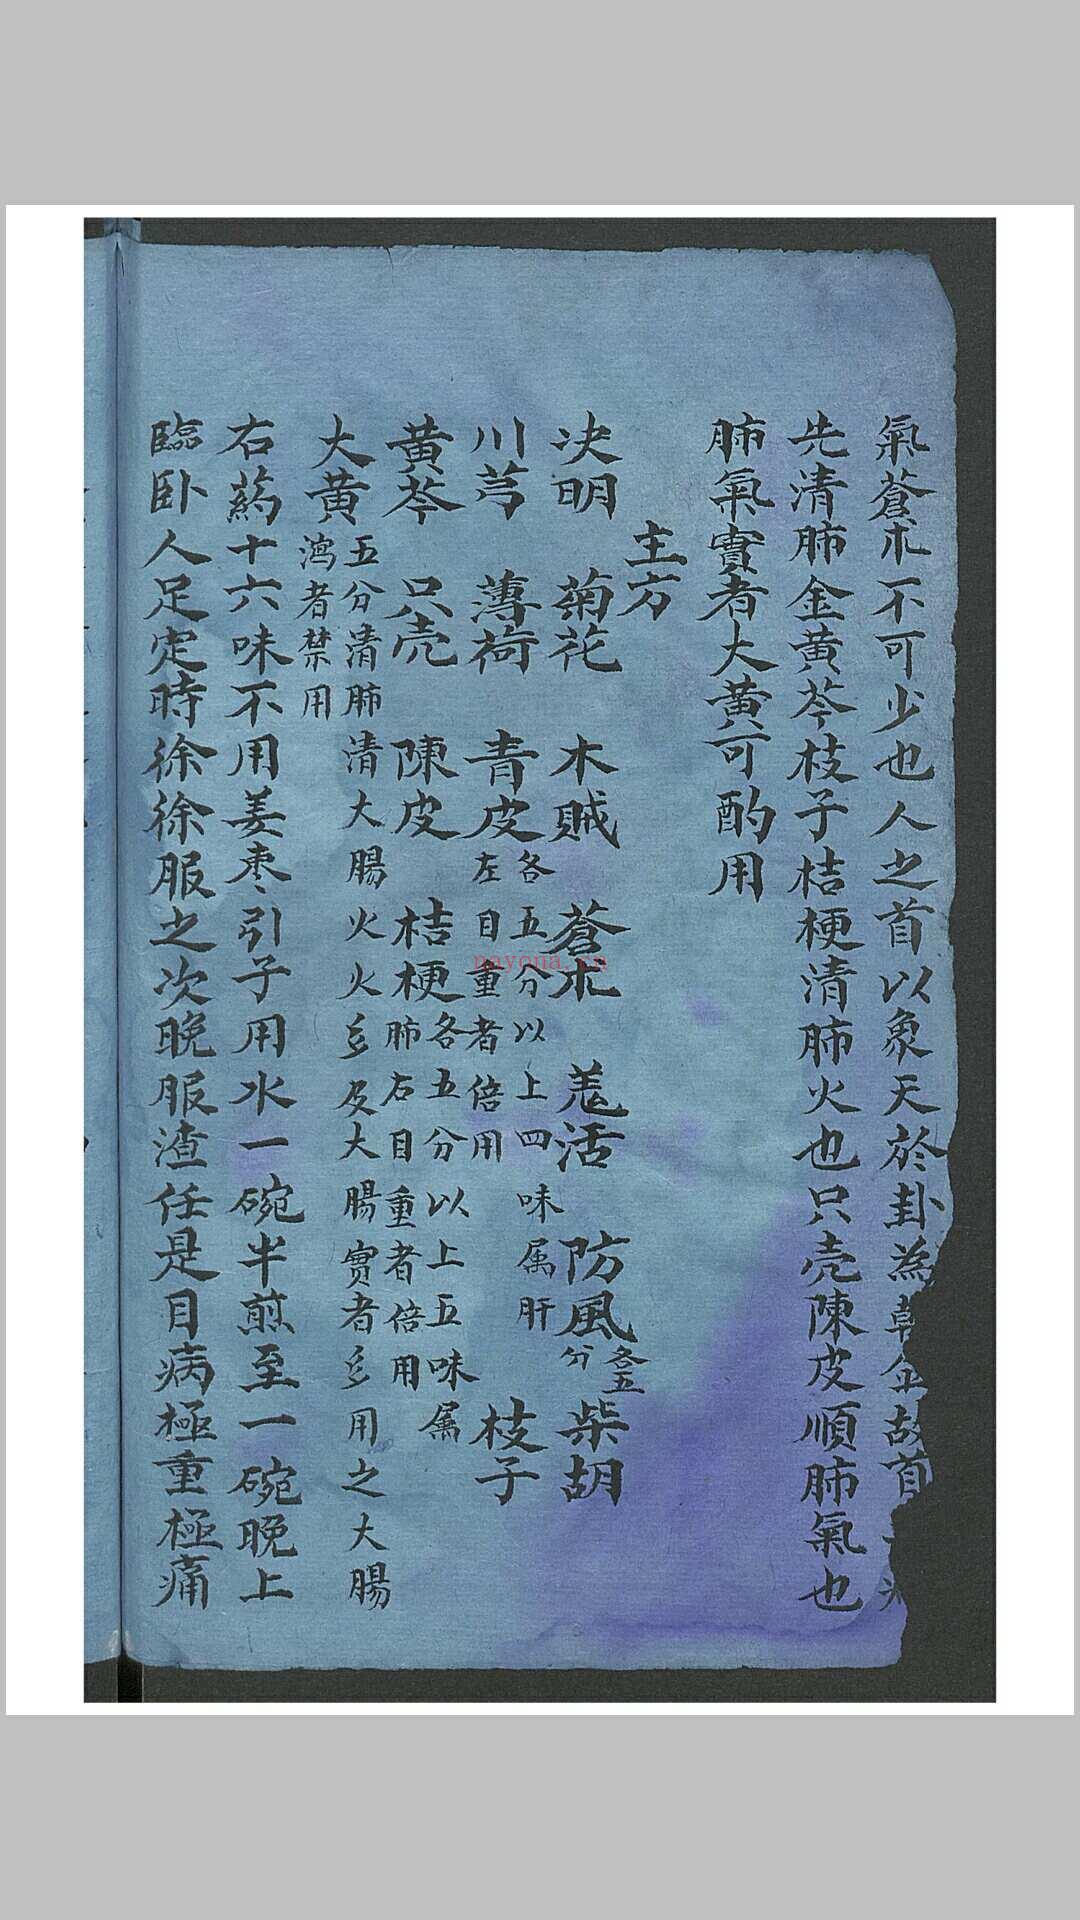 氣蒼朮不可少也人之首以象天於卦為乾金故首
先清肺金黄芩枝子桔梗清肺火也只壳陳皮順肺氣也
肺氣實者大黄可酌用
主方
决明 菊花 木賊 蒼朮 羗活 防風各五分 柴胡
川芎 薄荷 青皮各五分以上四味属肝左目重者倍用 枝子
黄芩 只壳 陳皮 桔梗各五分以上五味属肺右目重者倍用
大黄五分清肺清大腸火火乡及大腸實者乡用之大腸瀉者禁用
右藥十六味不用姜枣引子用水一碗半煎至一碗晚上
臨卧人足定時徐徐服之次晚服渣任是目病極重極痛
nayona.cn